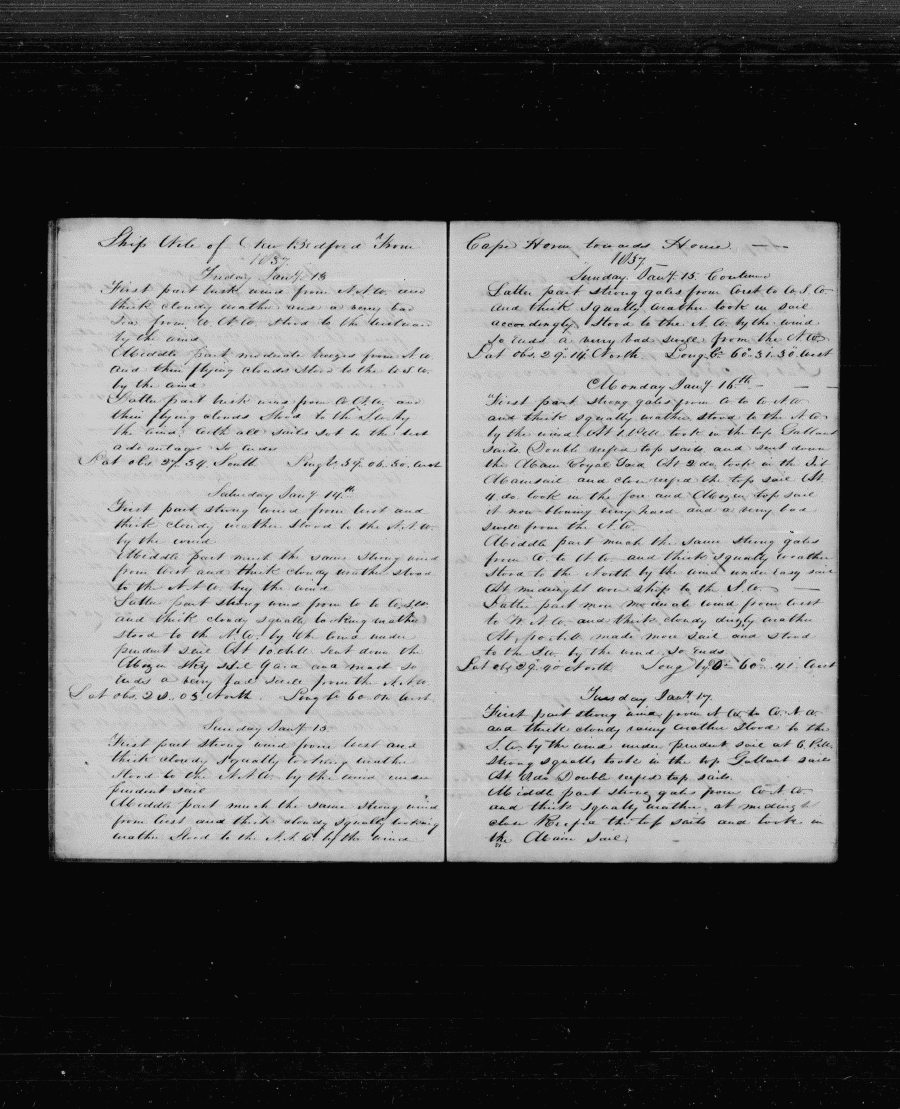 Ship of New Bedford From
1837
Friday Jany 13
First part brisk wind from N.N.W. and
thick cloudy weather and a very bad
Sea from W.N.W. stood to the westward
by the wind
Middle part moderate breezes from N.W.
and thin flying clouds stood to the W.S.W.
by the wind
Latter part brisk wind from W.N.W. and
thin flying clouds stood to the
the wind. with all sails set to the best
advantage So Ends
Lat obs 27.34. South Long by 59.06.30. West
Saturday Jany 14th
First part strong wind from West and
thick cloudy weather stood to the N.N.W.
by the wind
Middle part much the same strong wind
from West and thick cloudy weather stood
to the N.N.W. by the wind
Latter part strong wind from W. to W.S.W.
and thick cloudy squally looking weather
stood to the N.W. by the wind under
prudent sail At 10 oclk sent down the
Mizen Sky sail Yard and mast so
Ends a very bad swell from the N.N.W.
Lat obs. 28..03 North. Long by 60..04 West
Sunday Jany 15.
First part strong wind from West and
thick cloudy squally looking weather
stood to the N.N.W. by the wind under
prudent sail
Middle part much the same strong wind
from West and thick cloudy squally looking
weather stood to the N.N.W. by the wind
Cape Horn towards Home
1837
Sunday Jany 15. Continued
Latter part strong gales from West to W.S.W.
and thick squally weather took in sail
accordingly. Stood to the N.W. by the wind
So Ends a very bad swell from the N.W.
Lat obs. 29°.14 North Long by 60°.31.30 West
Monday Jany 16th
First part strong gales from W. to W.N.W.
and thick squally weather stood to the N.W.
by the wind. At 1 Pm took in the top Gallant
sails Double reefed top sails and sent down
the Main Royal Yard At 2 do. took in the
Mainsail and close reefd the top sail At
4 do took in the fore and Mizen top sail
it now blowing very hard and a very bad
swell from the N.W.
Middle part much the same strong gales
from W. to N.W. and thick squally weather
stood to the North by the wind under easy sail
At midnight wore ship to the S.W.
Latter part more moderate wind from West
to W.N.W. and thick cloudy weather
At oclk made more sail and stood
to the by the wind. So Ends
Lat obs 29°.40 North Long by 60°.41 West
Tuesday Jany 17
First part strong wind from N.W. to W.N.W.
and thick cloudy rainy weather stood to the
S.W. by the wind under prudent sail at 6 P.M.
strong squalls took in the top Gallant sails
At 8 do Double reefed top sails.
Middle part strong gales from W.N.W.
and thick squally weather. at midnight
close Reefed the top sails and took in
the Main Sail.